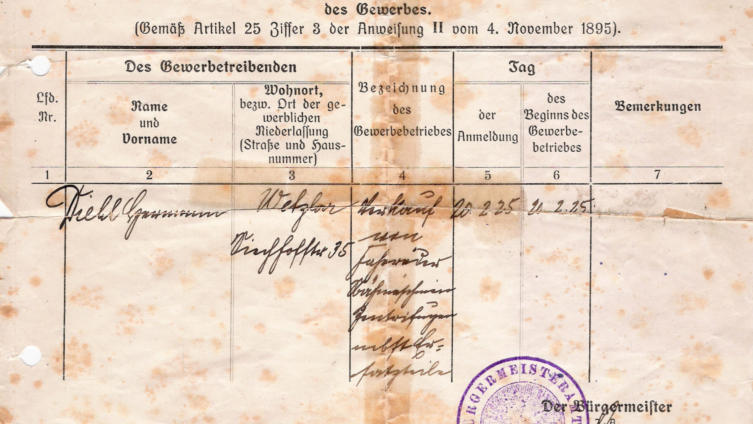 des Gewerbes.
(Gemäß Artikel 25 Ziffer 3 der Anweisung II vom 4. November 1895).
Lfd. Nr.
Des Gewerbetreibenden
Name und Vorname
Wohnort, bezw. Ort der ge-
werblichen
Niederlassung
(Straße und Haus-
nummer)
Bezeichnung
des
Gewerbebetriebes
Tag
der
Anmeldung
des
Beginns des
Gewerbe-
betriebes
Bemerkungen
1 2 3 4 5 6 7
Diehl Hermann Wetzlar Verkauf 20 2 25 20 2. 25.
von
35 Fahrräder
Nähmaschinen
Zentrifugen
nebst Er-
satzteile
BÜRGERMEISTERAMT
Der Bürgermeister